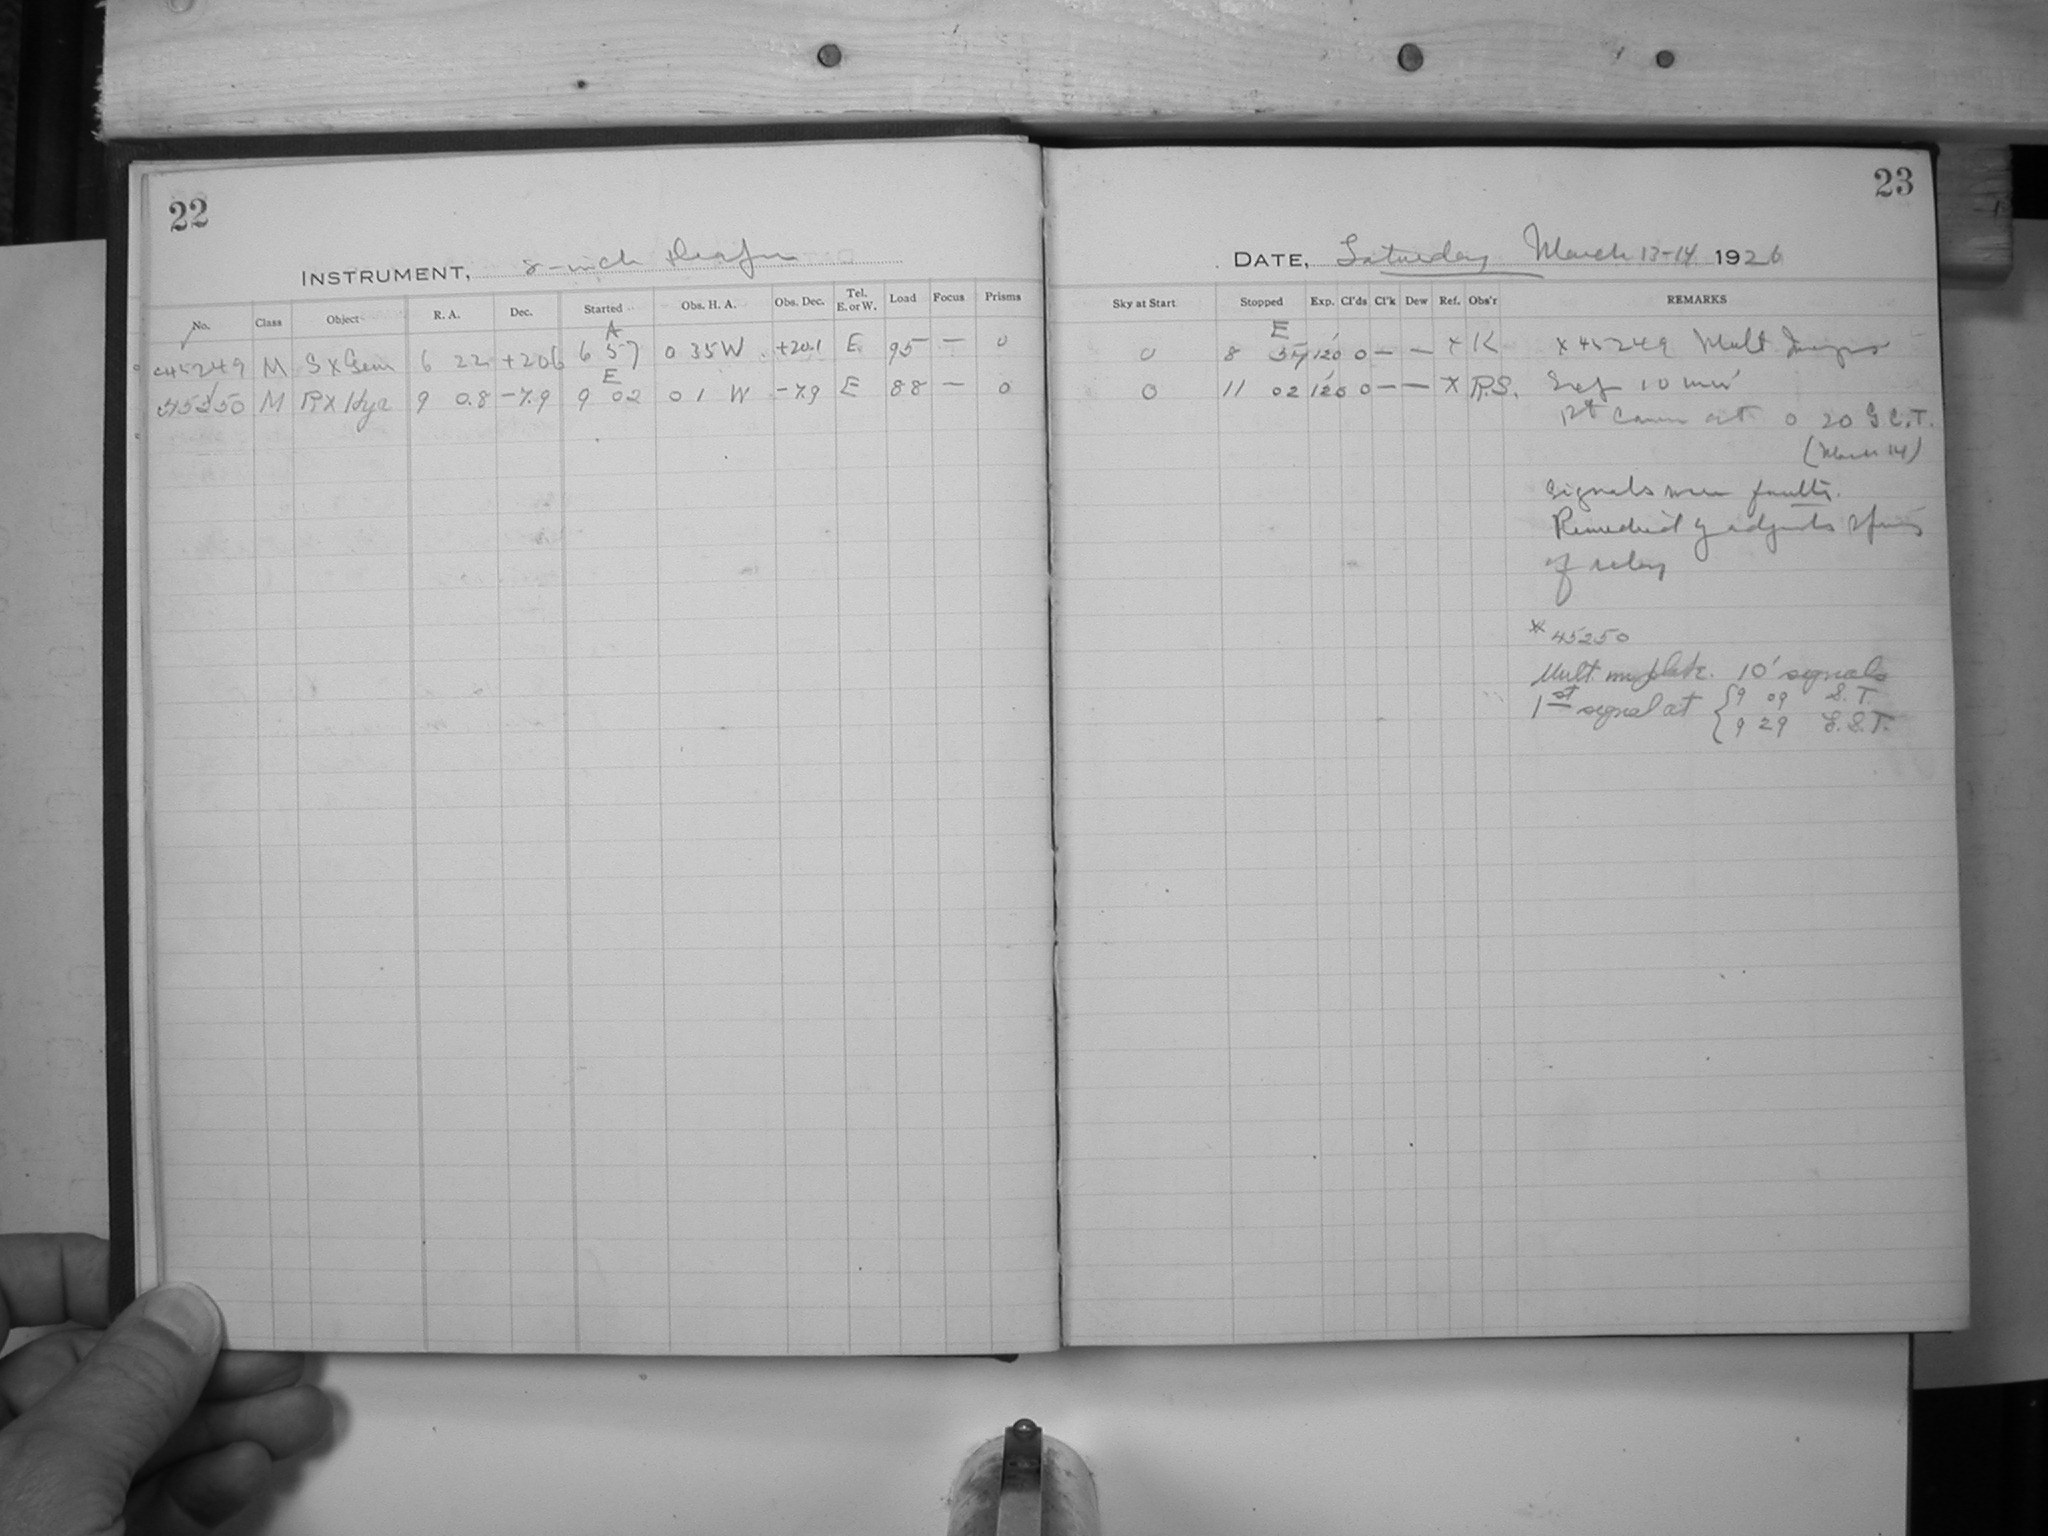 22
INSTRUMENT, 8-inch
No. Class Object R. A. Dec. Started Obs. H. A. Obs. Dec. Tel. E. or W. Load Focus Prisms
A
45249 M SX Gem 6 22 +20.6 6 57 0 35 W +20.1 E 95 — 0
E
45250 M RX Hya 9 0.8 -7.9 9 02 0 1 W -7.9 E 88 — 0
23
DATE, Saturday March 13-14 1926
Sky at Start Stopped Exp. Cl'ds Cl'k Dew Ref. Obs'r REMARKS
E
0 8 57 120 0 — — x K x 45249 Mult Images
0 11 02 120 0 — — x R.S. 10 min
1st at 0 20 G.C.T.
(March 14)
Signals were faulty.
Remedied by
of relay
* 45250
Mult. 10' signals
1st signal at 9 09 S.T.
9 29 E.S.T.